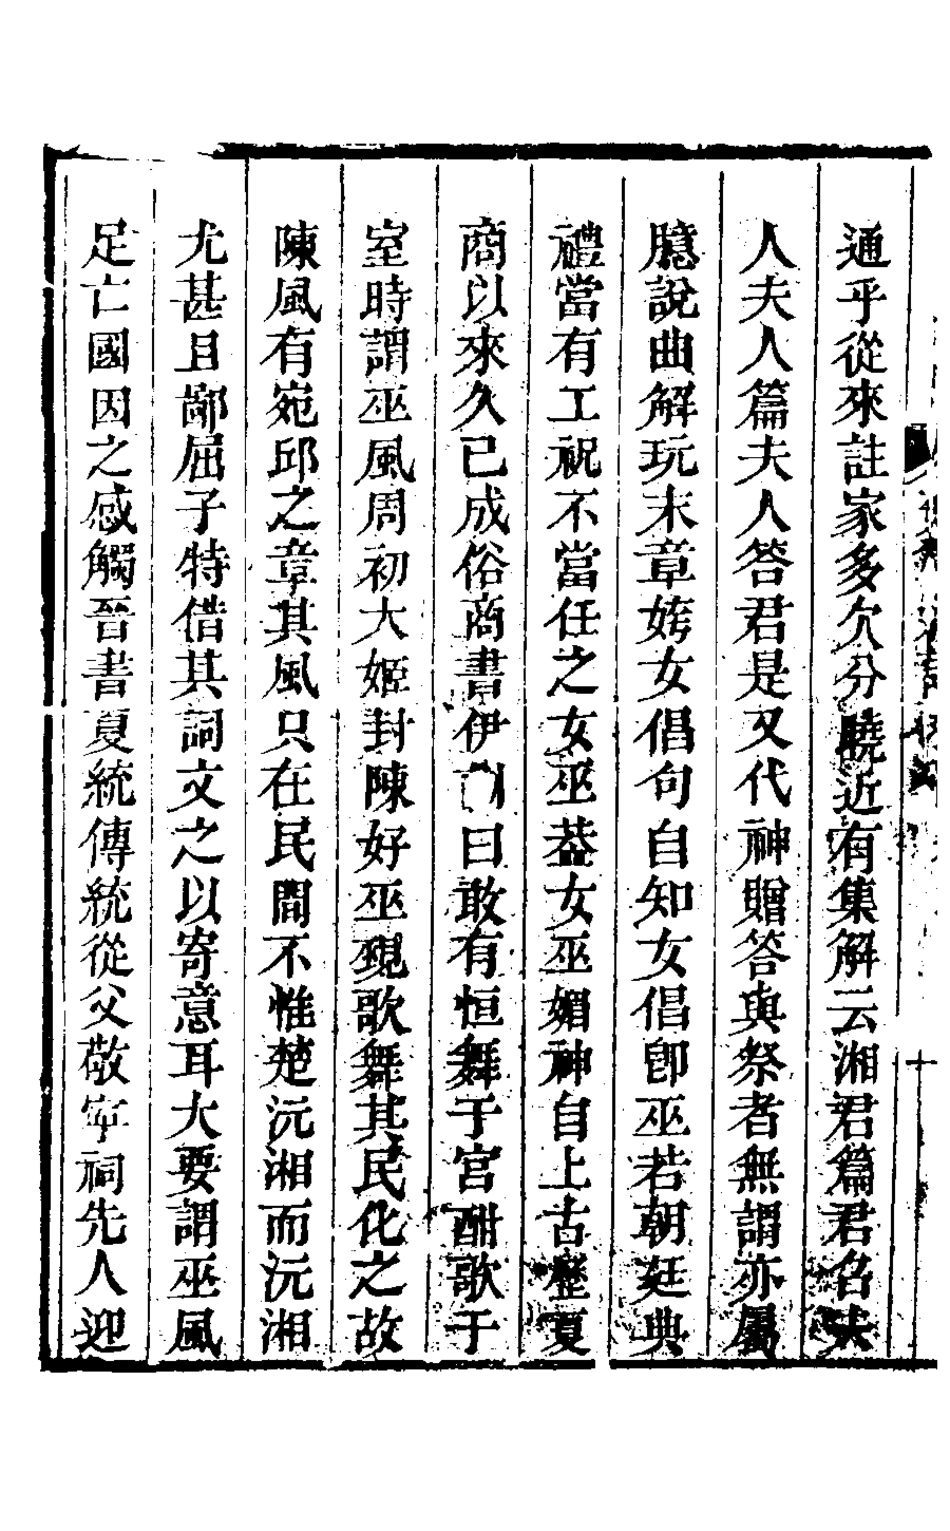 通乎從來註家多欠分曉近有集解云湘君篇君名夫
人夫人篇夫人答君是又代神贈答與祭者無謂亦屬
臆說曲解玩末章姱女倡句自知女倡卽巫若朝廷典
禮當有工祝不當任之女巫葢女巫媚神自上古歷夏
商以來久已成俗商書伊訓曰敢有恒舞于宮酣歌于
室時謂巫風周初大姬封陳好巫覡歌舞其民化之故
陳風有宛邱之章其風只在民間不惟楚沅湘而沅湘
尤甚且鄙屈子特借其詞文之以寄意耳大要謂巫風
足亡國因之感觸晉書夏統傳統從父敬寧祠先人迎